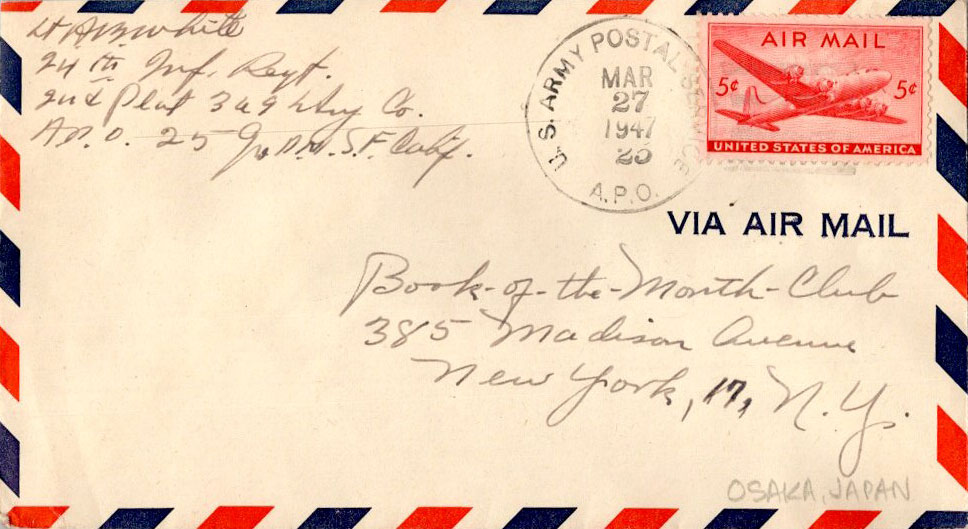 Lt. A.B. White
24th Inf. Regt.
2nd Plat
Co.
A.P.O. 25 S.F. Calif.
U.S. ARMY POSTAL SERVICE
MAR
27
1947
25
A.P.O.
AIR MAIL
5¢ 5¢
UNITED STATES OF AMERICA
VIA AIR MAIL
Book-of-the-Month-Club
385 Madison Avenue
New York, 17, N.Y.
OSAKA, JAPAN